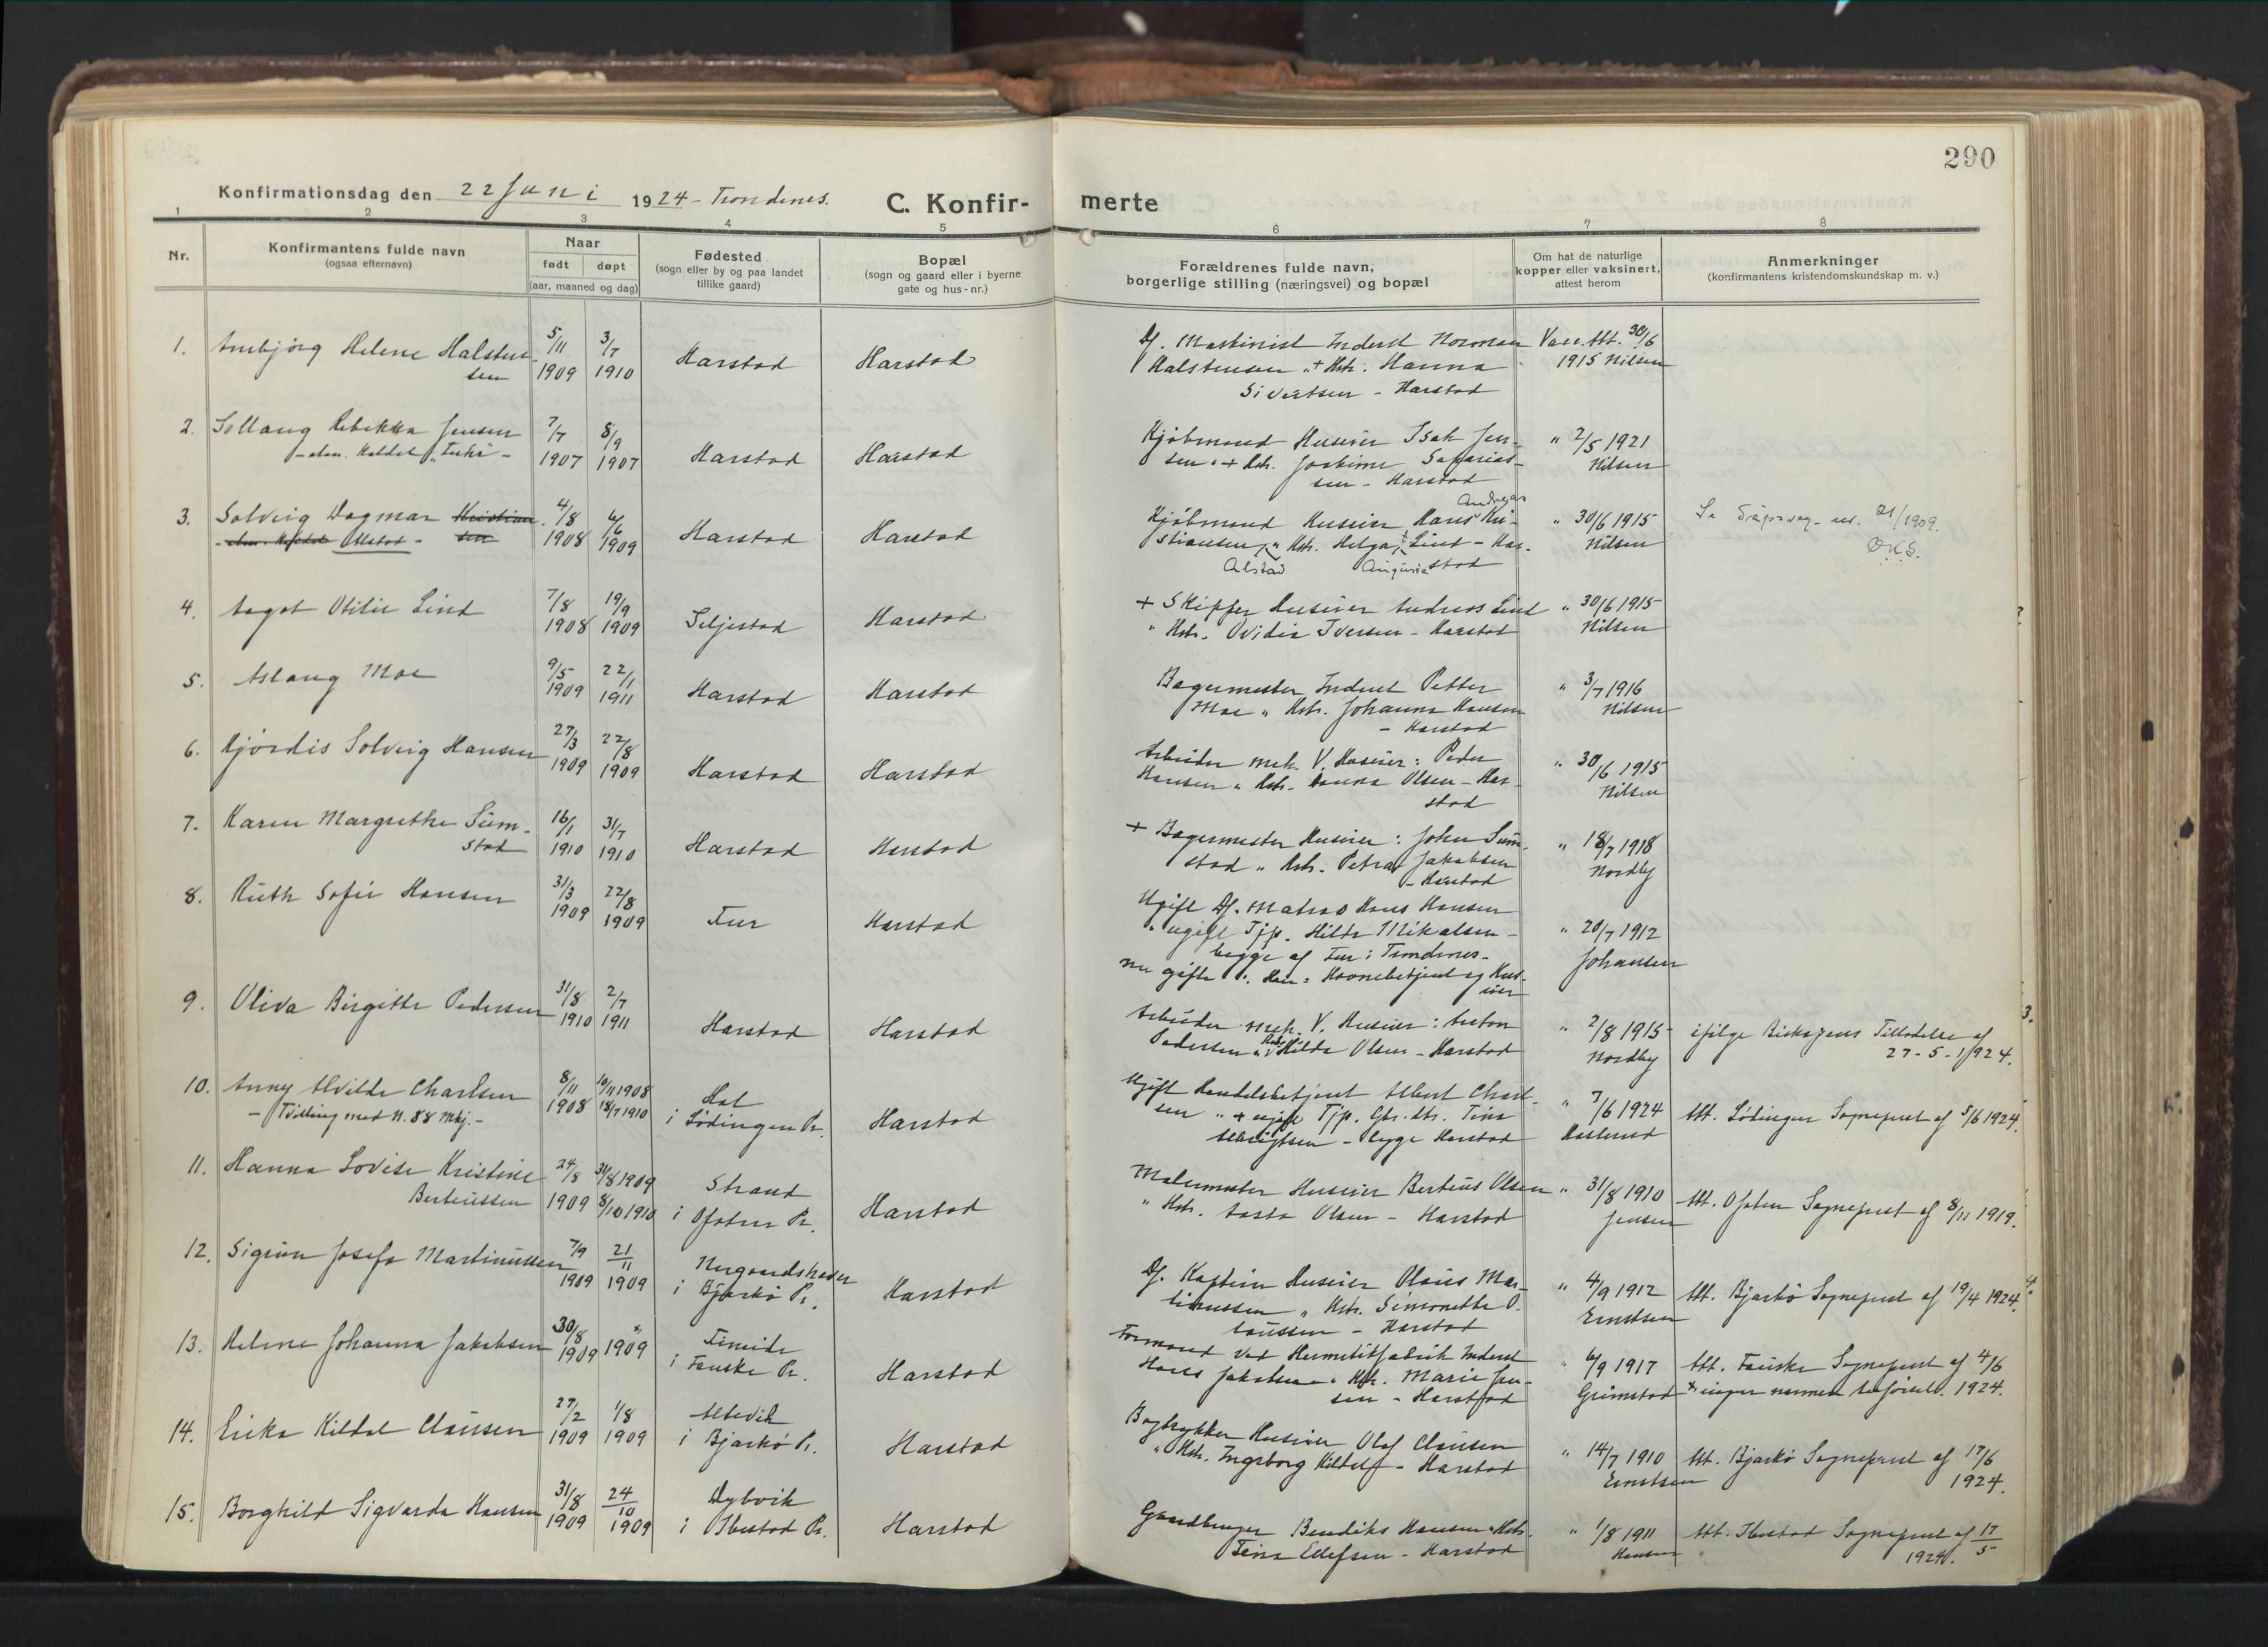 290
Konfirmationsdag den 22 Juni 1924 - Trondenes.
C. Konfir- merte
1 2 3 4 5 6 7 8
Nr.
Konfirmantens fulde navn
(ogsaa efternavn)
Naar
født døpt
(aar, maaned og dag)
Fødested
(sogn eller by og paa landet
tillike gaard)
Bopæl
(sogn og gaard eller i byerne
gate og hus-nr.)
Forældrenes fulde navn,
borgerlige stilling (næringsvei) og bopæl
Om hat de naturlige
kopper eller vaksinert,
attest herom
Anmerkninger
(konfirmantens kristendomskundskap m. v.)
1. Helene Halsten-
sen
5/11 1909 3/7 1910
Harstad Harstad
Maskinist Inderst Norman
Halstensen " + Hstr. Hanna
Sivertsen - Harstad
Vacc. Att. 30/6
1915 Nilsen
2. Rebekka Jensen
7/7 1907 8/9 1907
Harstad Harstad
Kjøbmand Huseier Isak Jen-
sen " + Hstr. Joakime Sakarias-
sen - Harstad
" 2/5 1921
Nilsen
3. Solveig Dagmar Kristian-
sen
4/8 1908 6/6 1909
Harstad Harstad
Andreas
Kjøbmand Huseier Hans Kri-
stiansen, " Hstr. Helga Lind - Har-
stad
Alstad
" 30/6 1915
Nilsen
21/1909.
O.K.S.
4. Aagot Otilie Lind
7/8 1908 19/9 1909
Seljestad Harstad
+ Skipper Huseier Andreas Lind
" Hstr. Ovidia Iversen - Harstad
" 30/6 1915
Nilsen
5. Aslaug Moe
9/5 1909 22/1 1911
Harstad Harstad
Bagermester Inderst Petter
Moe " Hstr. Johanna Hansen
- Harstad
" 3/7 1916
Nilsen
6. Hjørdis Solveig Hansen
27/3 1909 22/8 1909
Harstad Harstad
Arbeider mek. V. Huseier: Peder
Hansen " Hstr. Olsen - Har-
stad
" 30/6 1915
Nilsen
7. Karen Margrethe Sum-
stad
16/1 1910 31/7 1910
Harstad Harstad
+ Bagermester Huseier: John Sum-
stad " Hstr. Petra Jakobsen
- Harstad
" 18/7 1918
Nordby
8. Ruth Sofie Hansen
31/3 1909 22/8 1909
Harstad
Ugift Matros Hans Hansen
" ugift Tjp. Hilda Mikalsen -
begge af Trondenes -
nu gifte. Havnebetjent og Hus-
eier
" 20/7 1912
Johansen
9. Oliva Birgitte Pedersen
31/8 1910 2/7 1911
Harstad Harstad
Arbeider mek. V. Huseier: Anton
Pedersen " Hstr. Hilda Olsen - Harstad
" 2/8 1915
Nordby
ifølge Biskopens Tilladelse af
27-5-1924.
10. Anny Alvilde Charlsen
- Tvilling med N. 88 Mkj. -
8/11 1908 10/11 1908 18/7 1910
Hol
i Lødingen Pr.
Harstad
Ugift Handelsbetjent Albert Charl-
sen " + ugift Tjp. Tina
- begge Harstad
" 7/6 1924
Att. Lødingen Sogneprest af 5/6 1924.
11. Hanna Lovise Kristine
Berteussen
24/8 1909 31/8 1909 8/10 1910
Strand
i Ofoten Pr.
Harstad
Malermester Huseier Berteus Olsen
" Hstr. Aasta Olsen - Harstad
" 31/8 1910
Jensen
Att. Ofoten Sogneprest af 8/11 1919.
12. Sigrun Josefa Martinussen
7/9 1909 21/11 1909
i Bjarkø Pr.
Harstad
Kaptein Huseier Olaus Mar-
tinussen " Hstr. Simonette O.
- Harstad
" 4/9 1912
Ernstsen
Att. Bjarkø Sogneprest af 19/4 1924.
13. Helene Johanna Jakobsen
30/8 1909 * 1909
i Fauske Pr.
Harstad
Formand ved Hermetikfabrik Inderst
Hans Jakobsen " Hstr. Marie Jen-
sen - Harstad
" 6/9 1917
Grimstad
Att. Fauske Sogneprest af 4/6
* ingen nærmere Anførsel. 1924.
14. Erika Kildal Clausen
27/2 1909 1/8 1909
Altevik
i Bjarkø Pr.
Harstad
Bogtrykker Huseier Olaf Clausen
" Hstr. Ingeborg Kildal - Harstad
" 14/7 1910
Ernstsen
Att. Bjarkø Sogneprest af 17/6
1924.
15. Borghild Sigvarda Hansen
31/8 1909 24/10 1909
Dybvik
i Ibestad Pr.
Harstad
Gaardbruger Bendiks Hansen " Hstr.
Ellefsen - Harstad
" 1/8 1911
Hansen
Att. Ibestad Sogneprest af 17/5
1924.